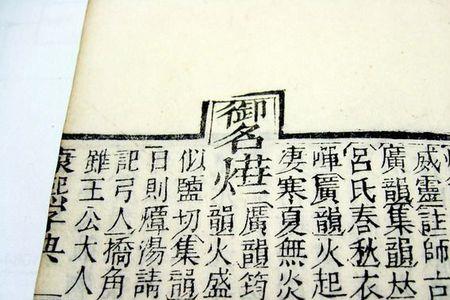 威靈註師古
廣韻集韻𠀤
呂氏春秋衣
廣韻火起
凄寒夏無炎
御名
燁
廣韻筠
韻火盛
似鹽切集韻
日則燂湯請
記弓人撟角
雖王公大人
康熙字典